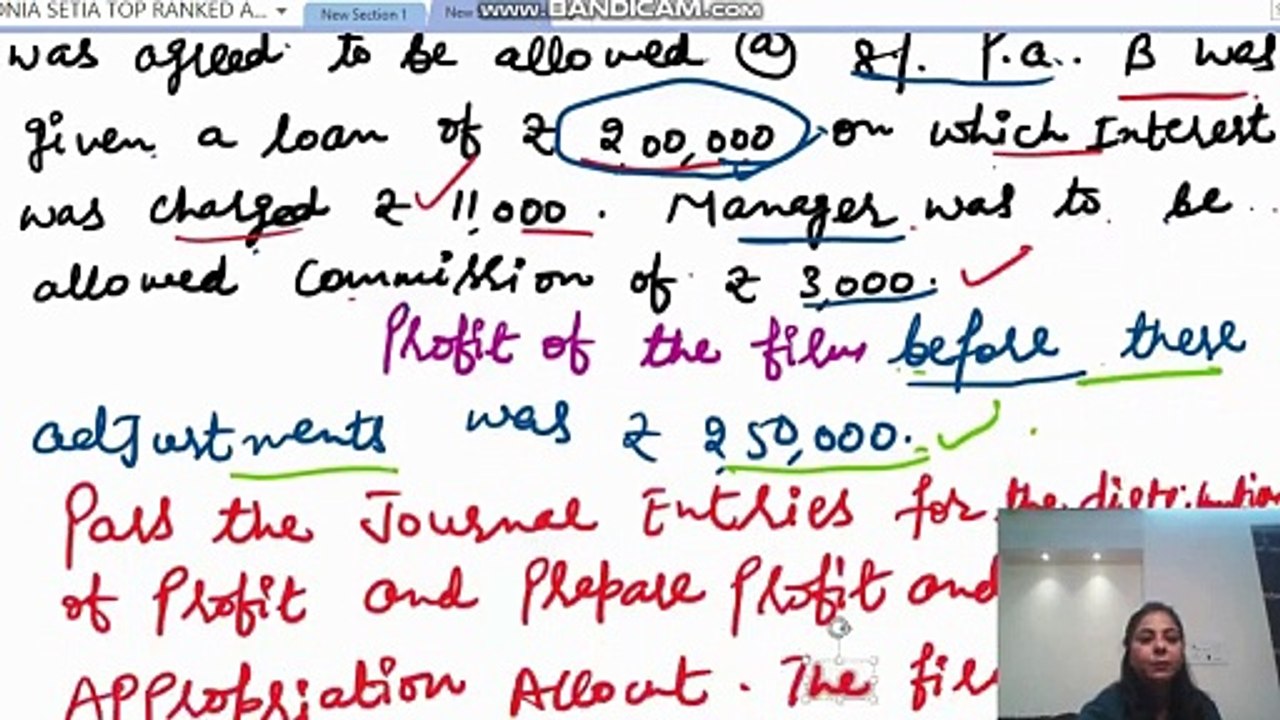 ONIA SETIA TOP RANKED A... New Section 1 www.BANDICAM.com
was agreed to be allowed @ 8% P.a.. B was
given a loan of ₹ 2,00,000 on which Interest
was charged ₹ 11,000. Manager was to be
allowed Commission of ₹ 3,000.
Profit of the firm before these
adjustments was ₹ 2,50,000.
Pass the Journal Entries for the distribution
of Profit and Prepare Profit and
Appropriation Account. The